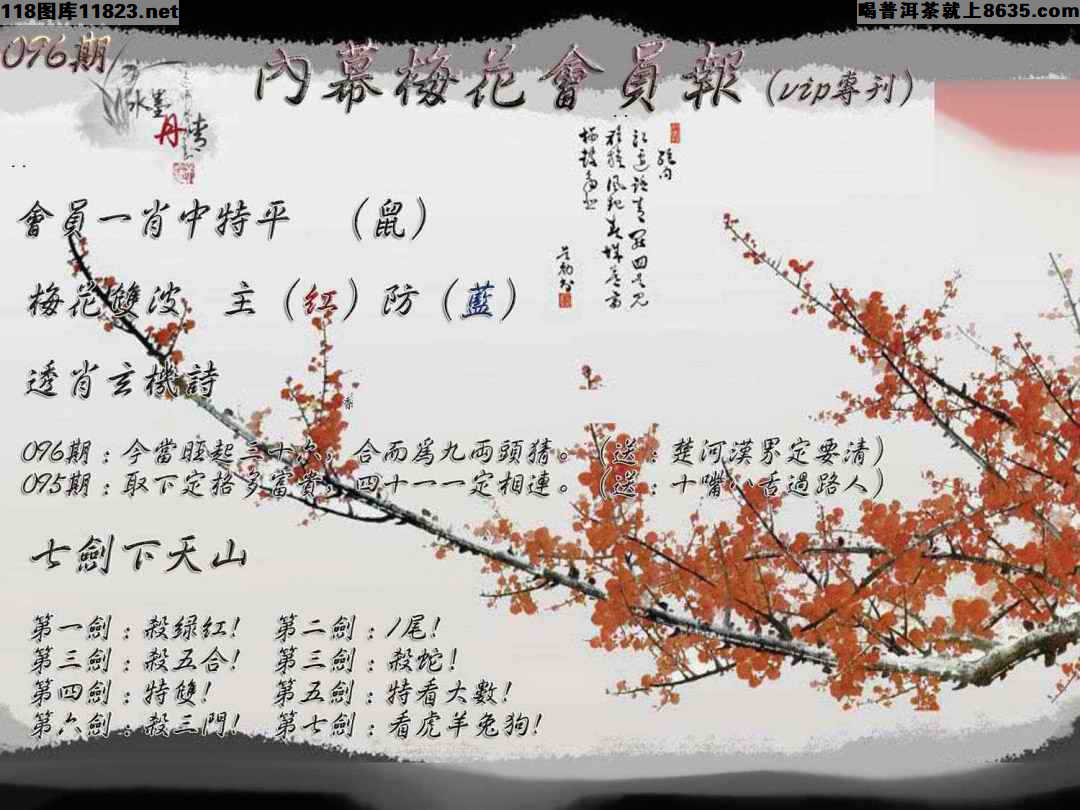 118图库11823.net
喝普洱茶就上8635.com
096期
內幕梅花會員報(vip專刊)
水墨
丹青
會員一肖中特平 （鼠）
梅花雙波 主（红）防（藍）
透肖玄機詩
096期：今當旺起三十次，合而為九両頭猜。（送：楚河漢界定要清）
095期：取下定格多富貴，四十一一定相連。（送：十嘴八舌過路人）
七劍下天山
第一劍：殺绿红! 第二劍：1尾!
第三劍：殺五合! 第三劍：殺蛇!
第四劍：特雙! 第五劍：特看大數!
第六劍：殺三門! 第七劍：看虎羊兔狗!